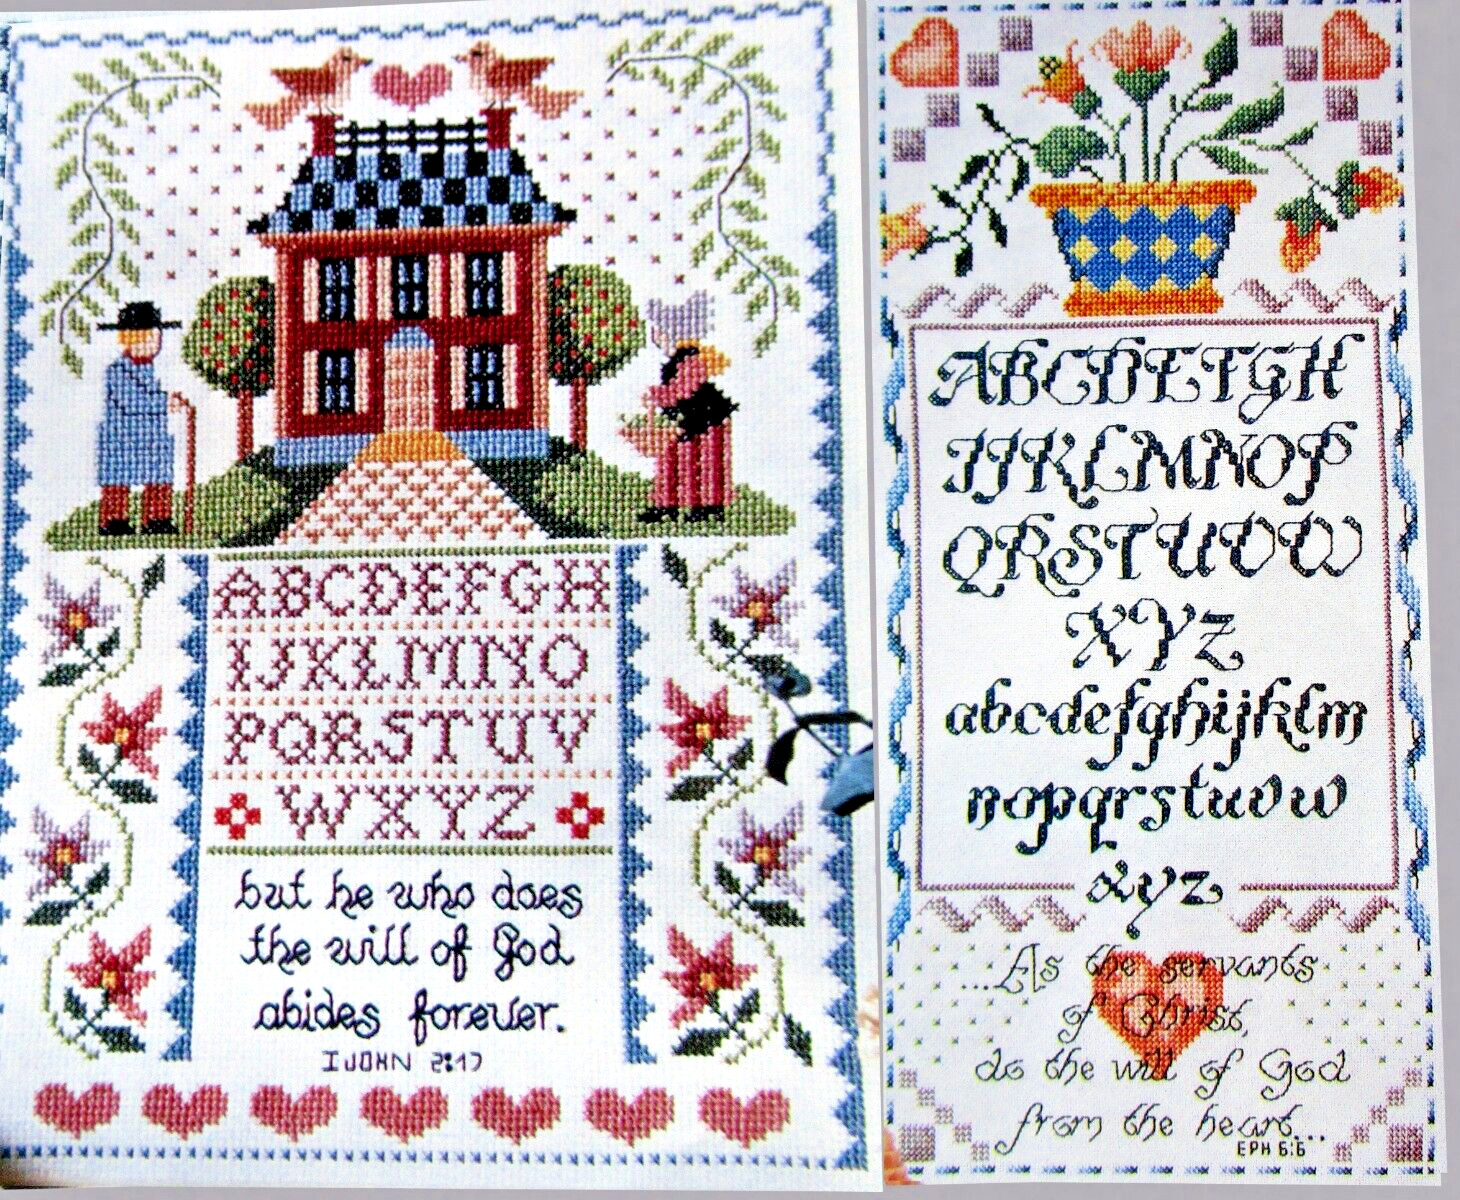 ABCDEFGH
IJKLMNO
PQRSTUV
WXYZ
but he who does
the will of God
abides forever.
I JOHN 2:17
ABCDEFGH
IJKLMNOP
QRSTUVW
XYZ
abcdefghijklm
nopqrstuvw
xyz
...As the servants
of Christ,
do the will of God
from the heart...
EPH 6:6